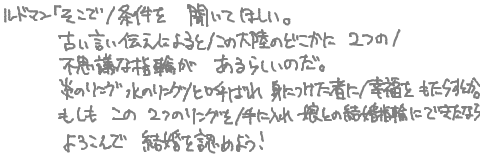 ルドマン「そこで/条件を 聞いてほしい。
古い言い伝えによると/この大陸のどこかに 2つの/
不思議な指輪が あるらしいのだ。
炎のリング 水のリング/と呼ばれ 身につけた者に/幸福を もたらすとか
もしも この 2つのリングを/手に入れ 娘との結婚指輪にできたなら
よろこんで 結婚を認めよう!